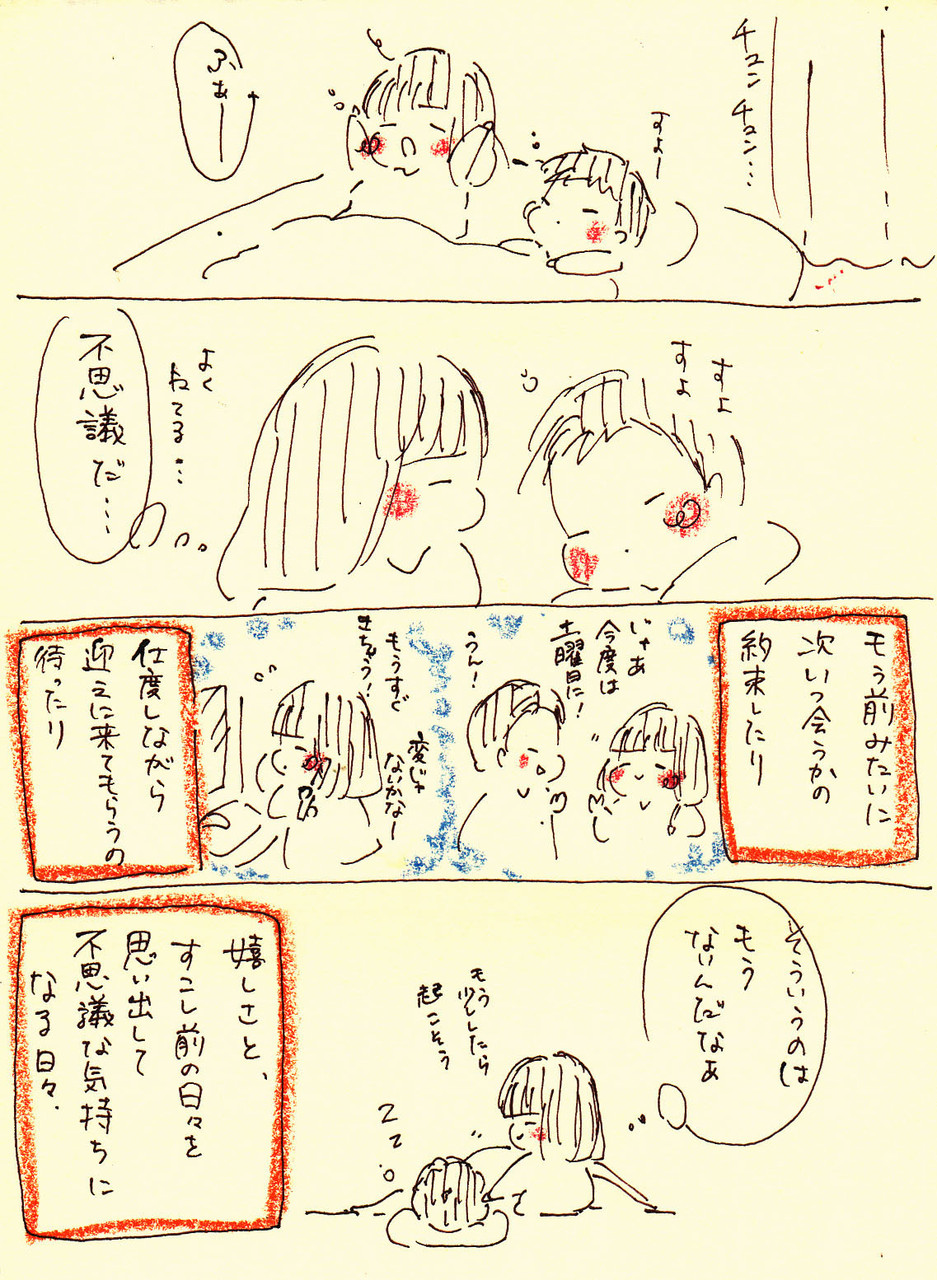 チュン
チュン…
すよー
ふぁー
すよ
すよ
よく
ねてる…
不思議だ…
もう前みたいに
次いつ会うかの
約束したり
じゃあ
今度は
土曜日に!
うん!
もうすぐ
きちゃう!
変じゃ
ないかなー
仕度しながら
迎えに来てもらうの
待ったり
そういうのは
もう
ないんだなぁ
もう
少ししたら
起こそう
嬉しさと、
すこし前の日々を
思い出して
不思議な気持ちに
なる日々.